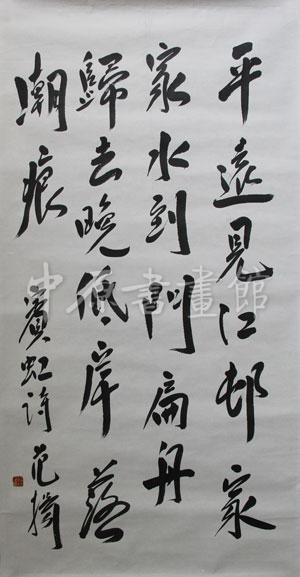 平遠見江邨家
家水到門扁舟
歸去晚低岸落
潮痕 賓虹詩 范揚
書畫館